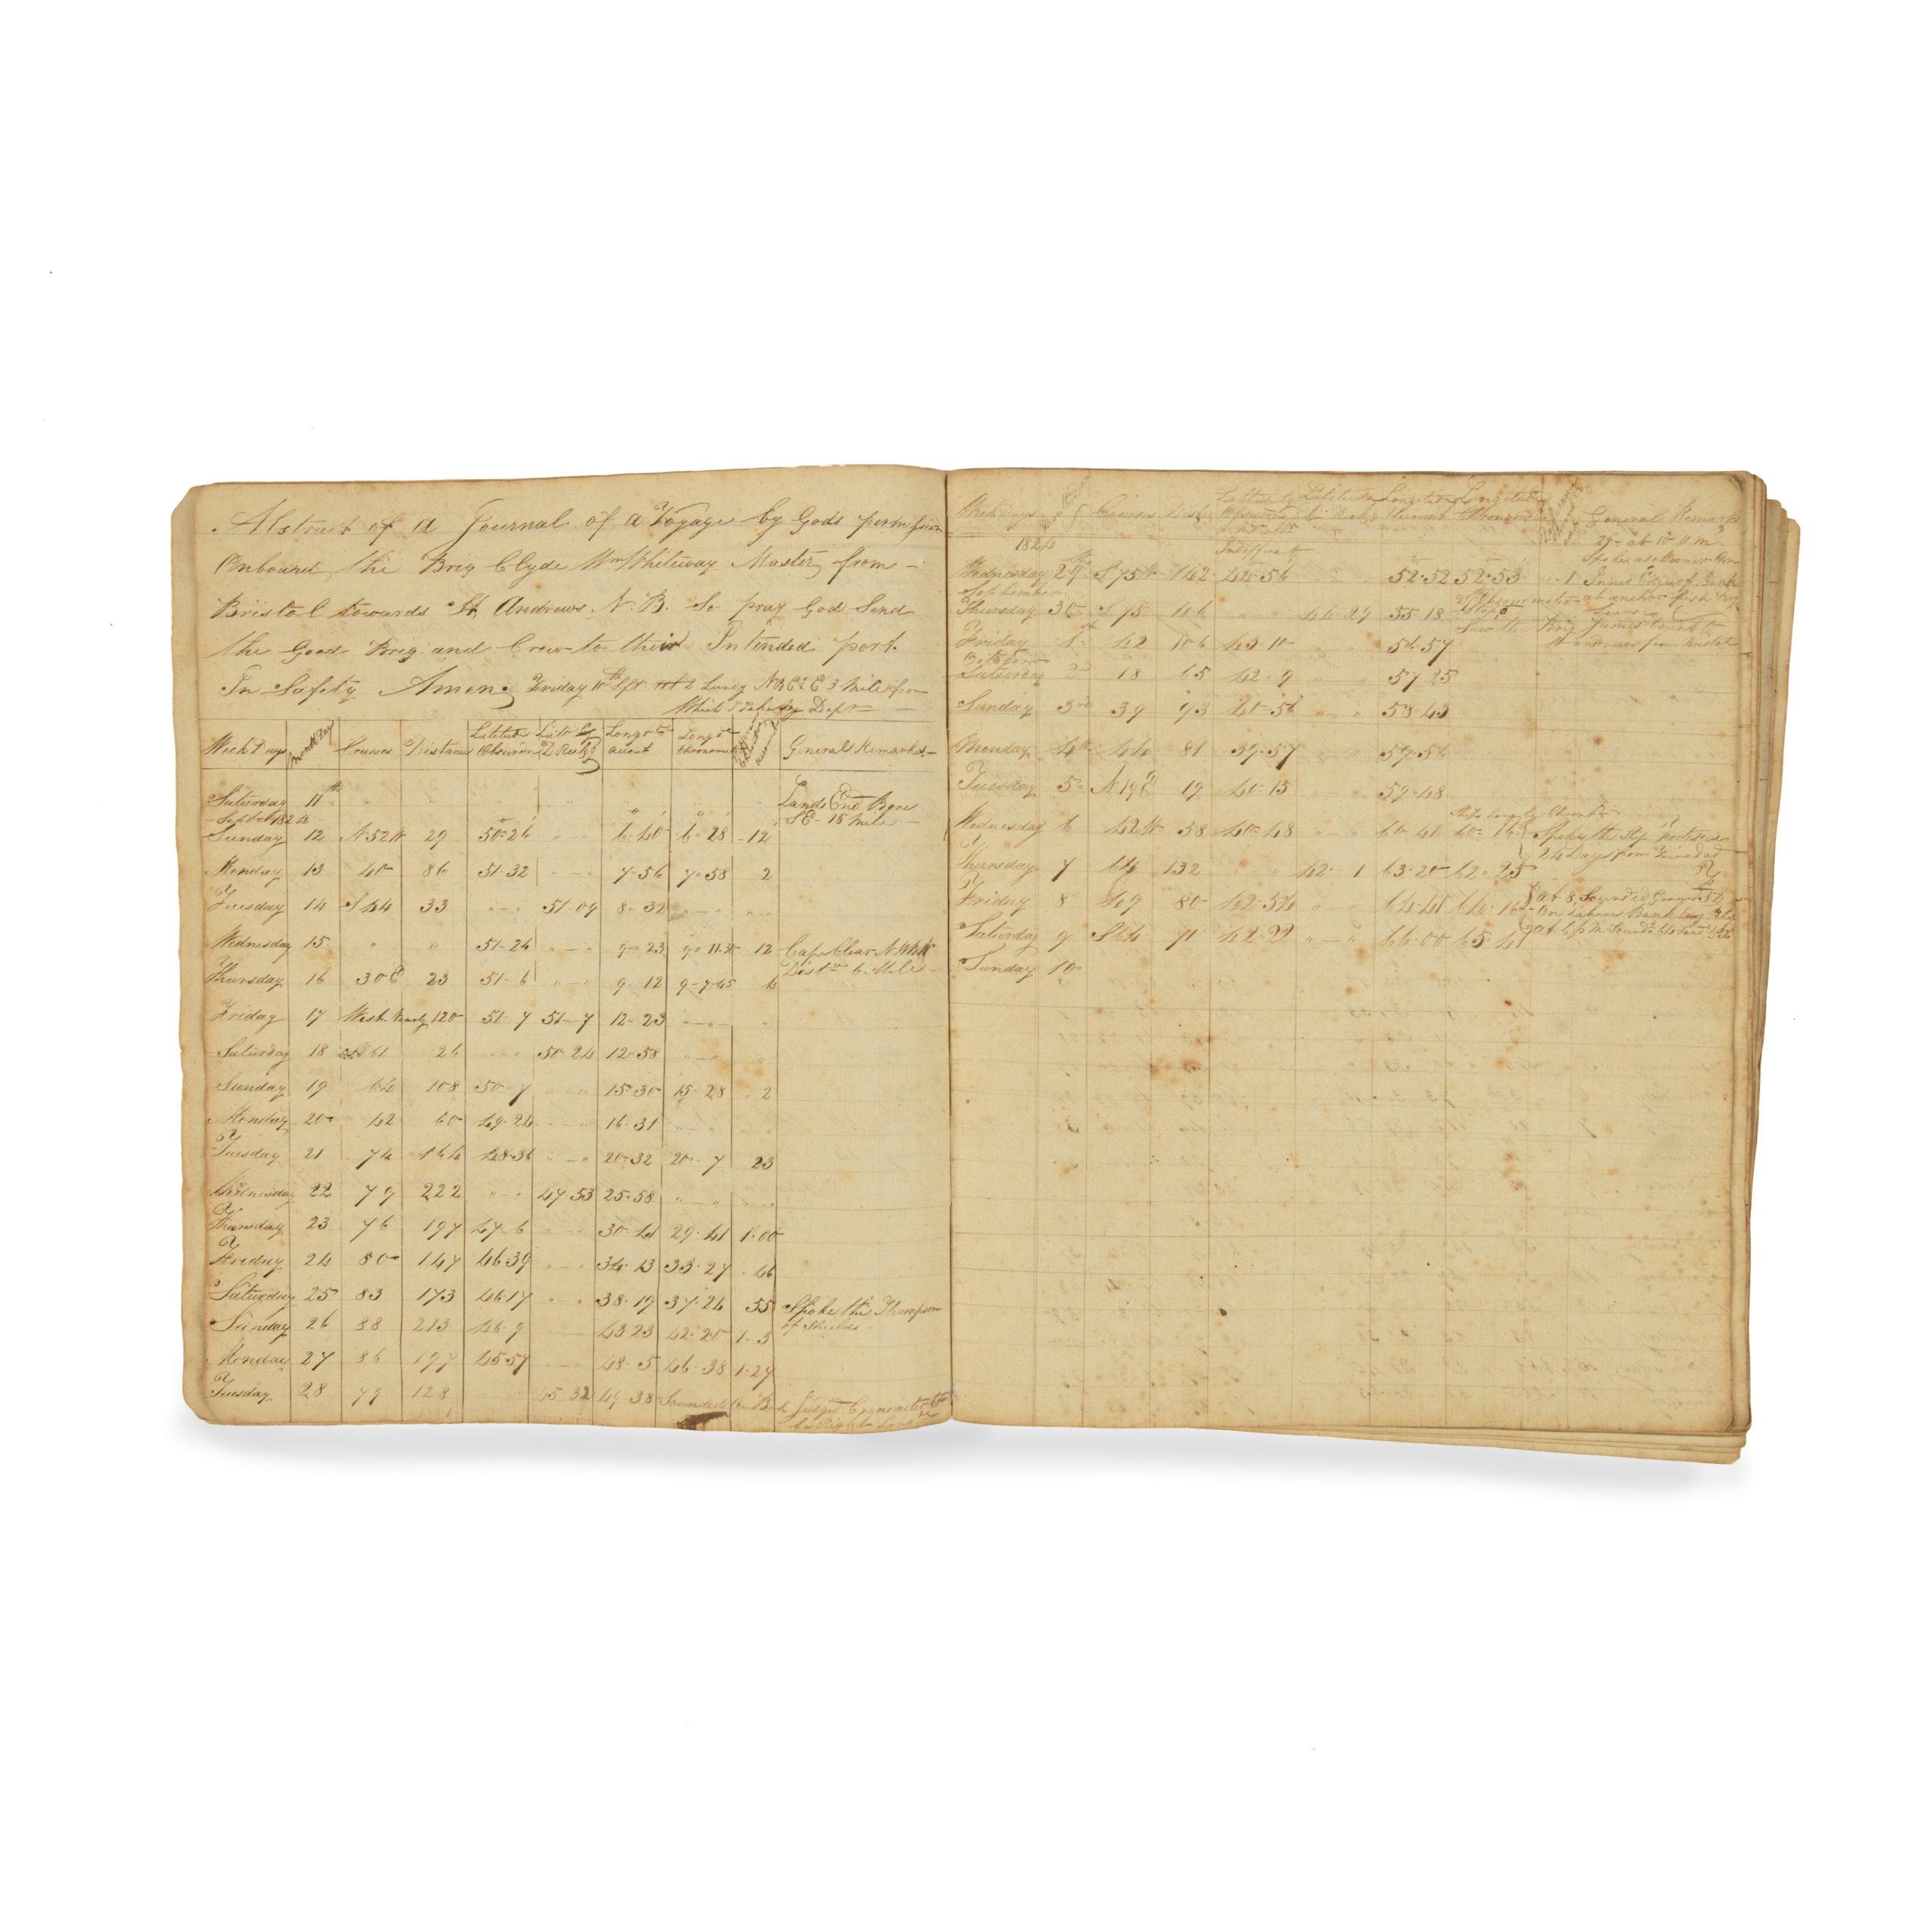 Abstract of a Journal of a Voyage by Gods permission
Onboard the Brig Clyde Wm Whiteway Master from –
Bristol towards St Andrews N.B. So pray God Send
the Good Brig and Crew to their Intended port.
In Safety Amen Friday 10th Sept Lundy N E 3 Mile from
Which I take my Dep
Week Day Month Day Courses Distance Latitude Observn Latt by D Reckg Longt account Longt Chronomet General Remarks –
Saturday 11th Lands End Bore
Septr 1824 SE – 15 Mile –
Sunday 12 N 52 W 29 50-26 6-40 6-28 -12
Monday 13 40 86 51-32 7-56 7-58 2
Tuesday 14 S 44 33 51 09 8-32
Wednesday 15 51-24 9-23 9-11-20 12 Cape Clear N W
Distce 6 Mile
Thursday 16 30 E 23 51-6 9 12 9-7-45 4
Friday 17 West Nearly 120 51-7 51-7 12-23
Saturday 18 61 26 50-24 12-58
Sunday 19 64 108 50-7 15-30 15-28 2
Monday 20 42 60 49-24 16-31
Tuesday 21 74 164 48-36 20-32 20-7 23
Wednesday 22 79 222 47-53 25-58
Thursday 23 76 197 47-6 30-41 29-41 1-00
Friday 24 80 147 46-39 34-13 33-27 46
Saturday 25 83 173 46-17 38-19 37-24 55 Spoke the Thompson
of Shields –
Sunday 26 88 213 46-9 43 23 42-20 1-3
Monday 27 86 197 45-57 48-5 46-38 1-27
Tuesday 28 79 128 45 32 49-38 Sounded on Bank Judged Cronometer to
be Right
Week Days Courses Dist Lattude by Observn Latitude by Reckg Longitude Account Longitude Chronomr General Remarks
1824 Indiffrent 29 at 10 a m
Wednesday 29th S 75 W 142 44-56 52-52 52-53 1 Spoke a Schooner on Inner Edge of Bank
September Chronometer Stopd at anchor fish
Thursday 30 S 75 106 44-29 55-18
Saw the Brig James bound to
Friday 1st 42 106 43-10 56-57 St Andrews from Bristol
October
Saturday 2nd 18 65 42-9 57 25
Sunday 3rd 39 93 40-56 58-43
Monday 4th 44 81 39-57 59-56
Tuesday 5 N 19 E 19 40-15 59-48
Wednesday 6 42 W 58 40-48 60-41 60-16 Spoke the Ship
24 Days from Trinidad
Thursday 7 64 132 42-1 63-20 62-25
Friday 8 49 80 42-54 64-41 64-16 at 8 Sounded
Saturday 9 S 64 71 42-22 66-00 65-41
Sunday 10